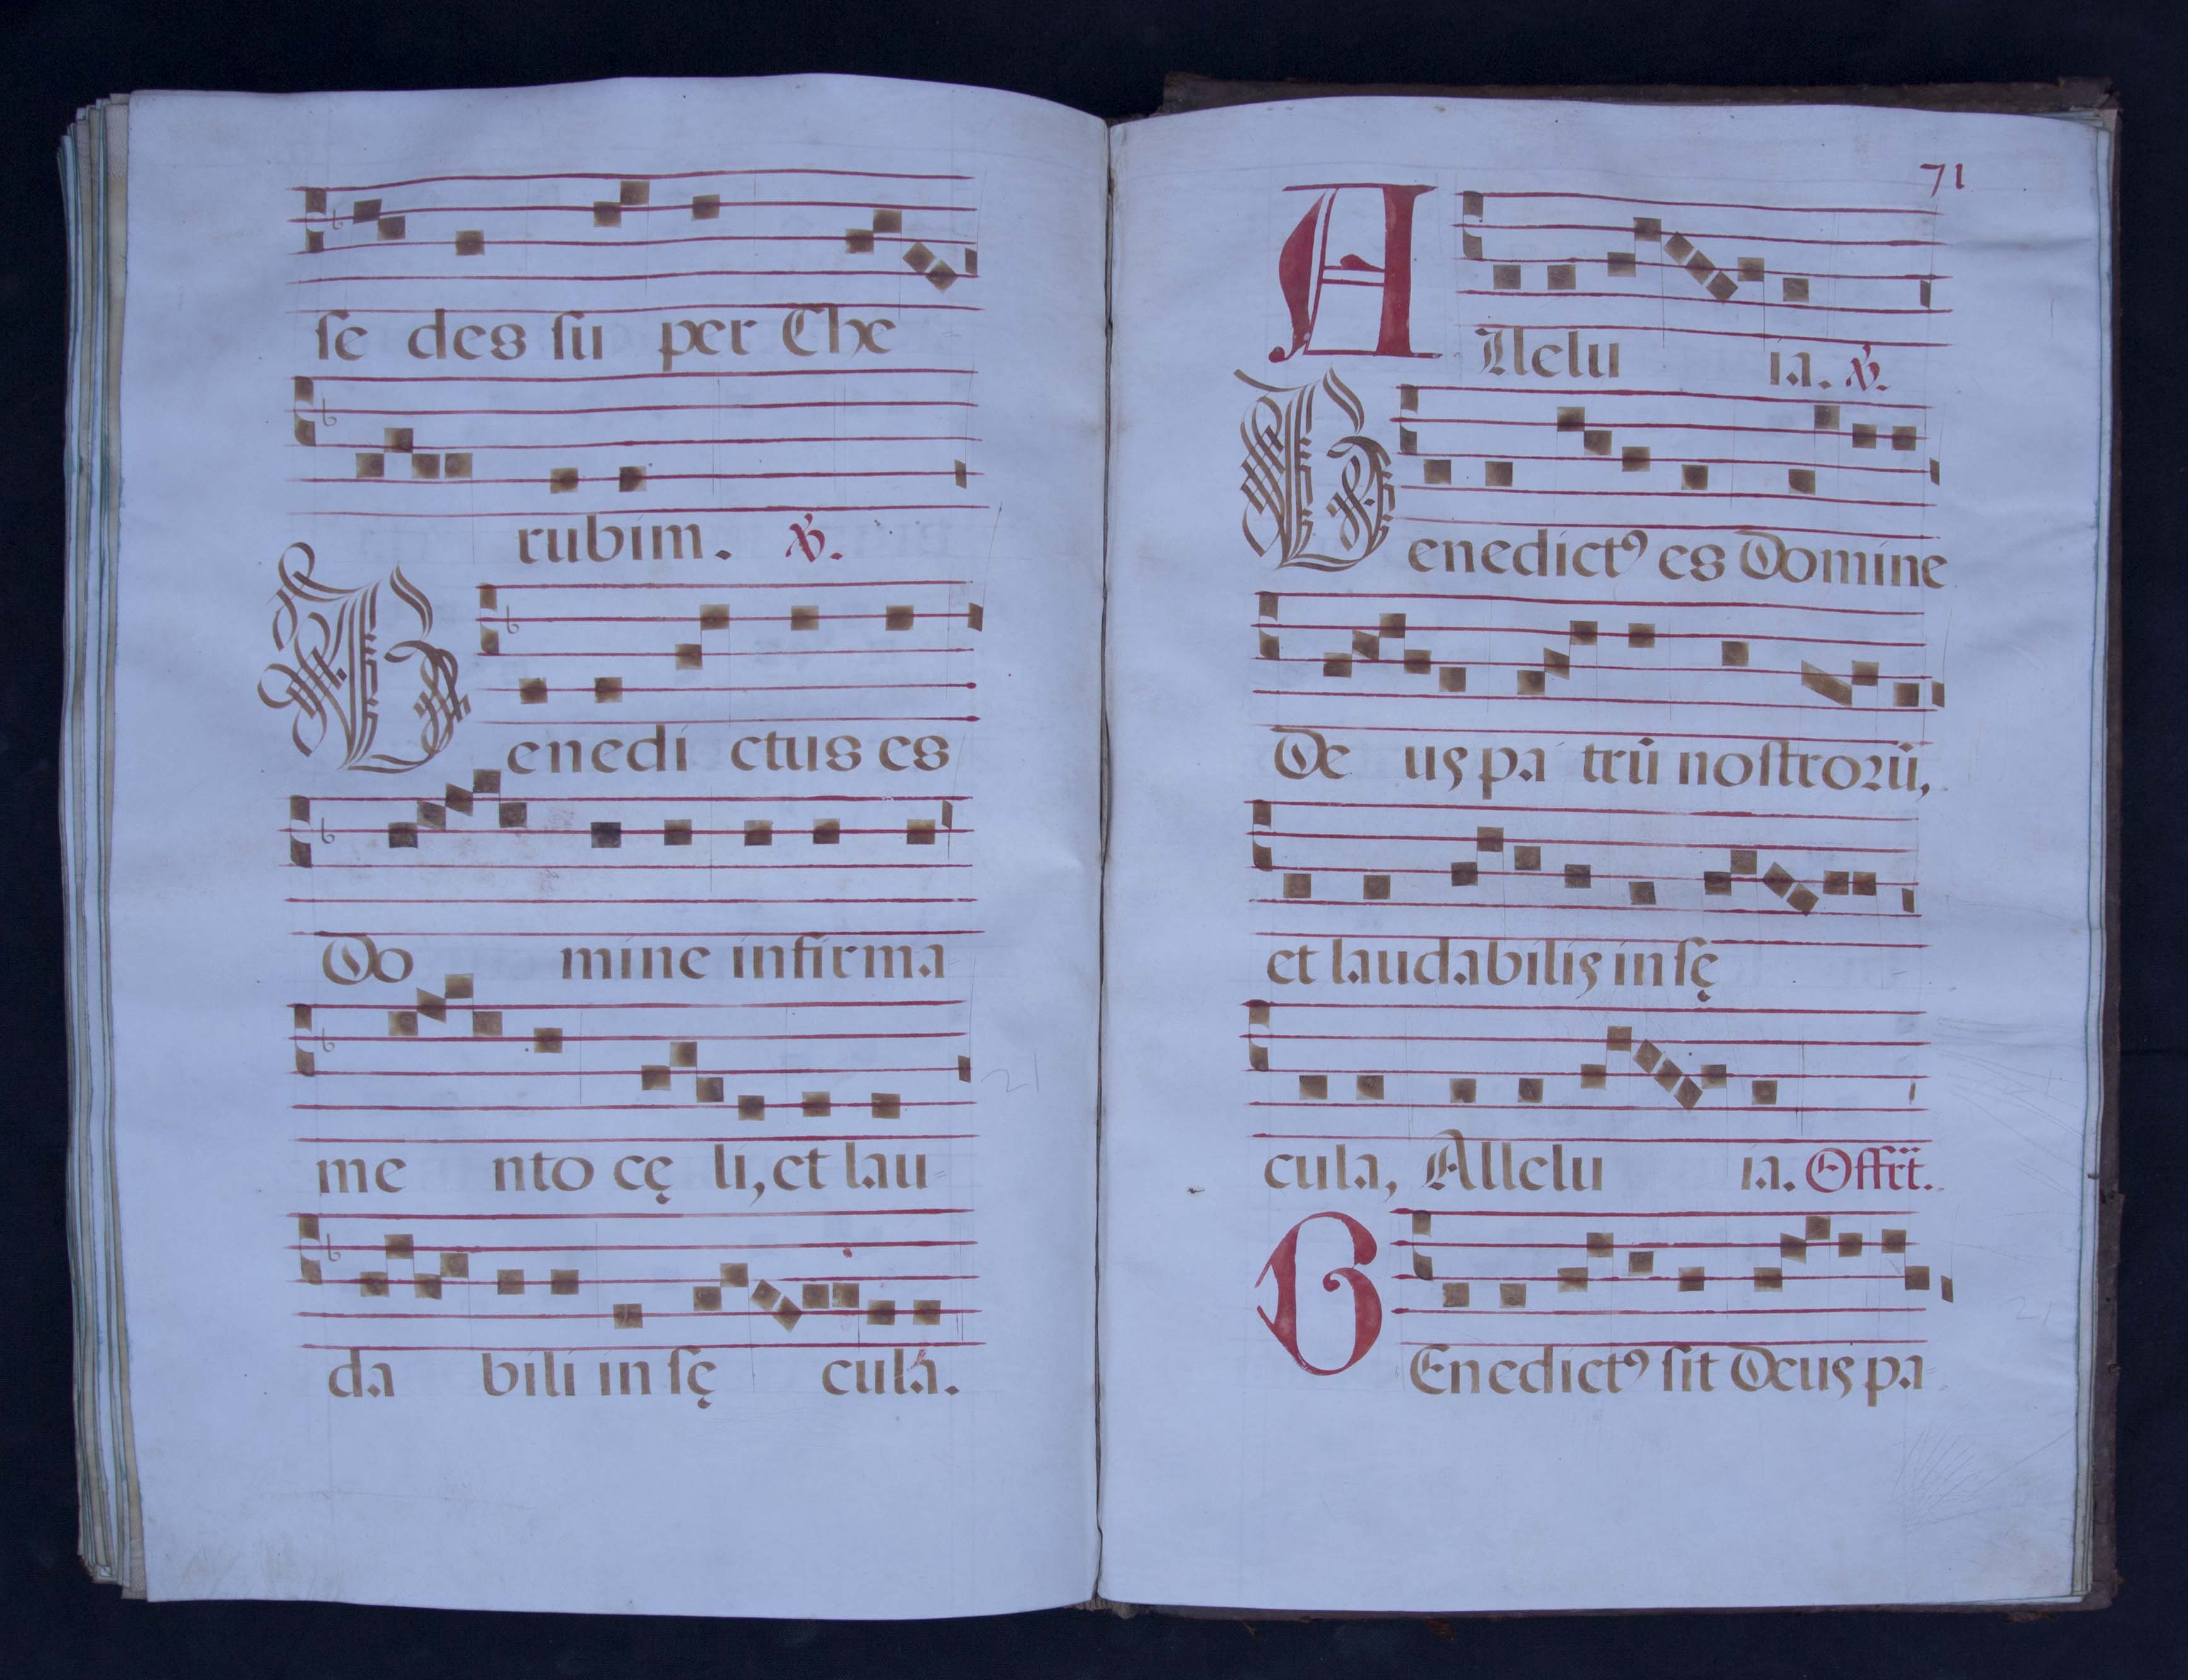 se des su per Che
rubim. ℣.
Benedi ctus es
Do mine infirma
me nto cę li, et lau
da bili in sę cula.
71
Allelu ia. ℣.
Benedictꝰ es Domine
De us pa trū nostrorū,
et laudabilis in sę
cula, Allelu ia. Offrt.
BEnedictꝰ sit Deus pa